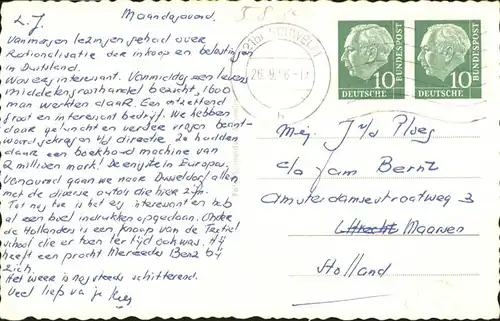 L. J. Maandagavond.
Vanmorgen lezingen gehad over
Rationalisatie der inkoop en belastingen
in Duitsland.
Was erg interessant. Vanmiddag een levens
middelengroothandel bezicht, 1600
man werkten daar. Een ontzettend
groot en interessant bedrijf. We hebben
daar geluncht en verdere vragen beant-
woord gekregen v/d directie. Ze hadden
daar een boekhoud machine van
2 milliven mark! De enigste in Europa.
Vanavond gaan we naar Dusseldorf allen
met de diverse autos die hier zijn.
Tot nu toe is het erg interessant en heb
al een boel indrukken opgedaan. Onder
de Hollanders is een knaap van de Textiel
school die er toen ter tijd ook was. Hij
heeft een pracht Mercedes Benz bij
zich.
Het weer is nog steeds schitterend.
Veel liefs van je Kees
10 DEUTSCHE BUNDESPOST
10 DEUTSCHE BUNDESPOST
Mej. J v/d Ploeg
c/o fam Bernt
Amsterdamsestraatweg 3
Utrecht Maarsen
Holland